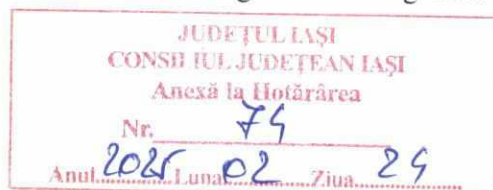 JUDEȚUL IAȘI
CONSILIUL JUDEȚEAN IAȘI
Anexă la Hotărârea
Nr. 74
Anul 2025 Luna 02 Ziua 24